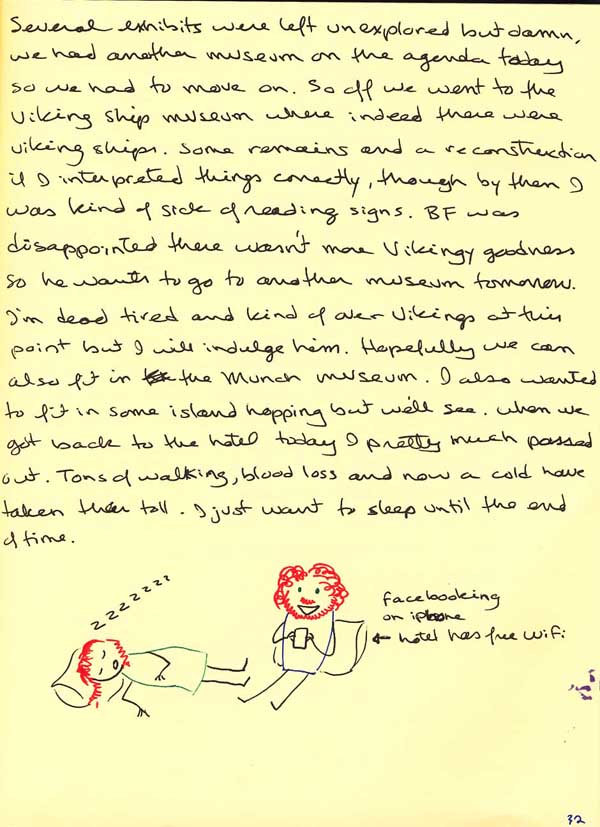 Several exhibits were left unexplored but damn,
we had another museum on the agenda today
so we had to move on. So off we went to the
Viking ship museum where indeed there were
viking ships. Some remains and a reconstruction
if I interpreted things correctly, though by then I
was kind of sick of reading signs. BF was
disappointed there wasn't more Vikingy goodness
so he wants to go to another museum tomorrow.
I'm dead tired and kind of over Vikings at this
point but I will indulge him. Hopefully we can
also fit in the Munch museum. I also wanted
to fit in some island hopping but we'll see. When we
got back to the hotel today I pretty much passed
out. Tons of walking, blood loss and now a cold have
taken their toll. I just want to sleep until the end
of time.
zzzzzzz
facebooking
on iphone
← hotel has free wifi
32